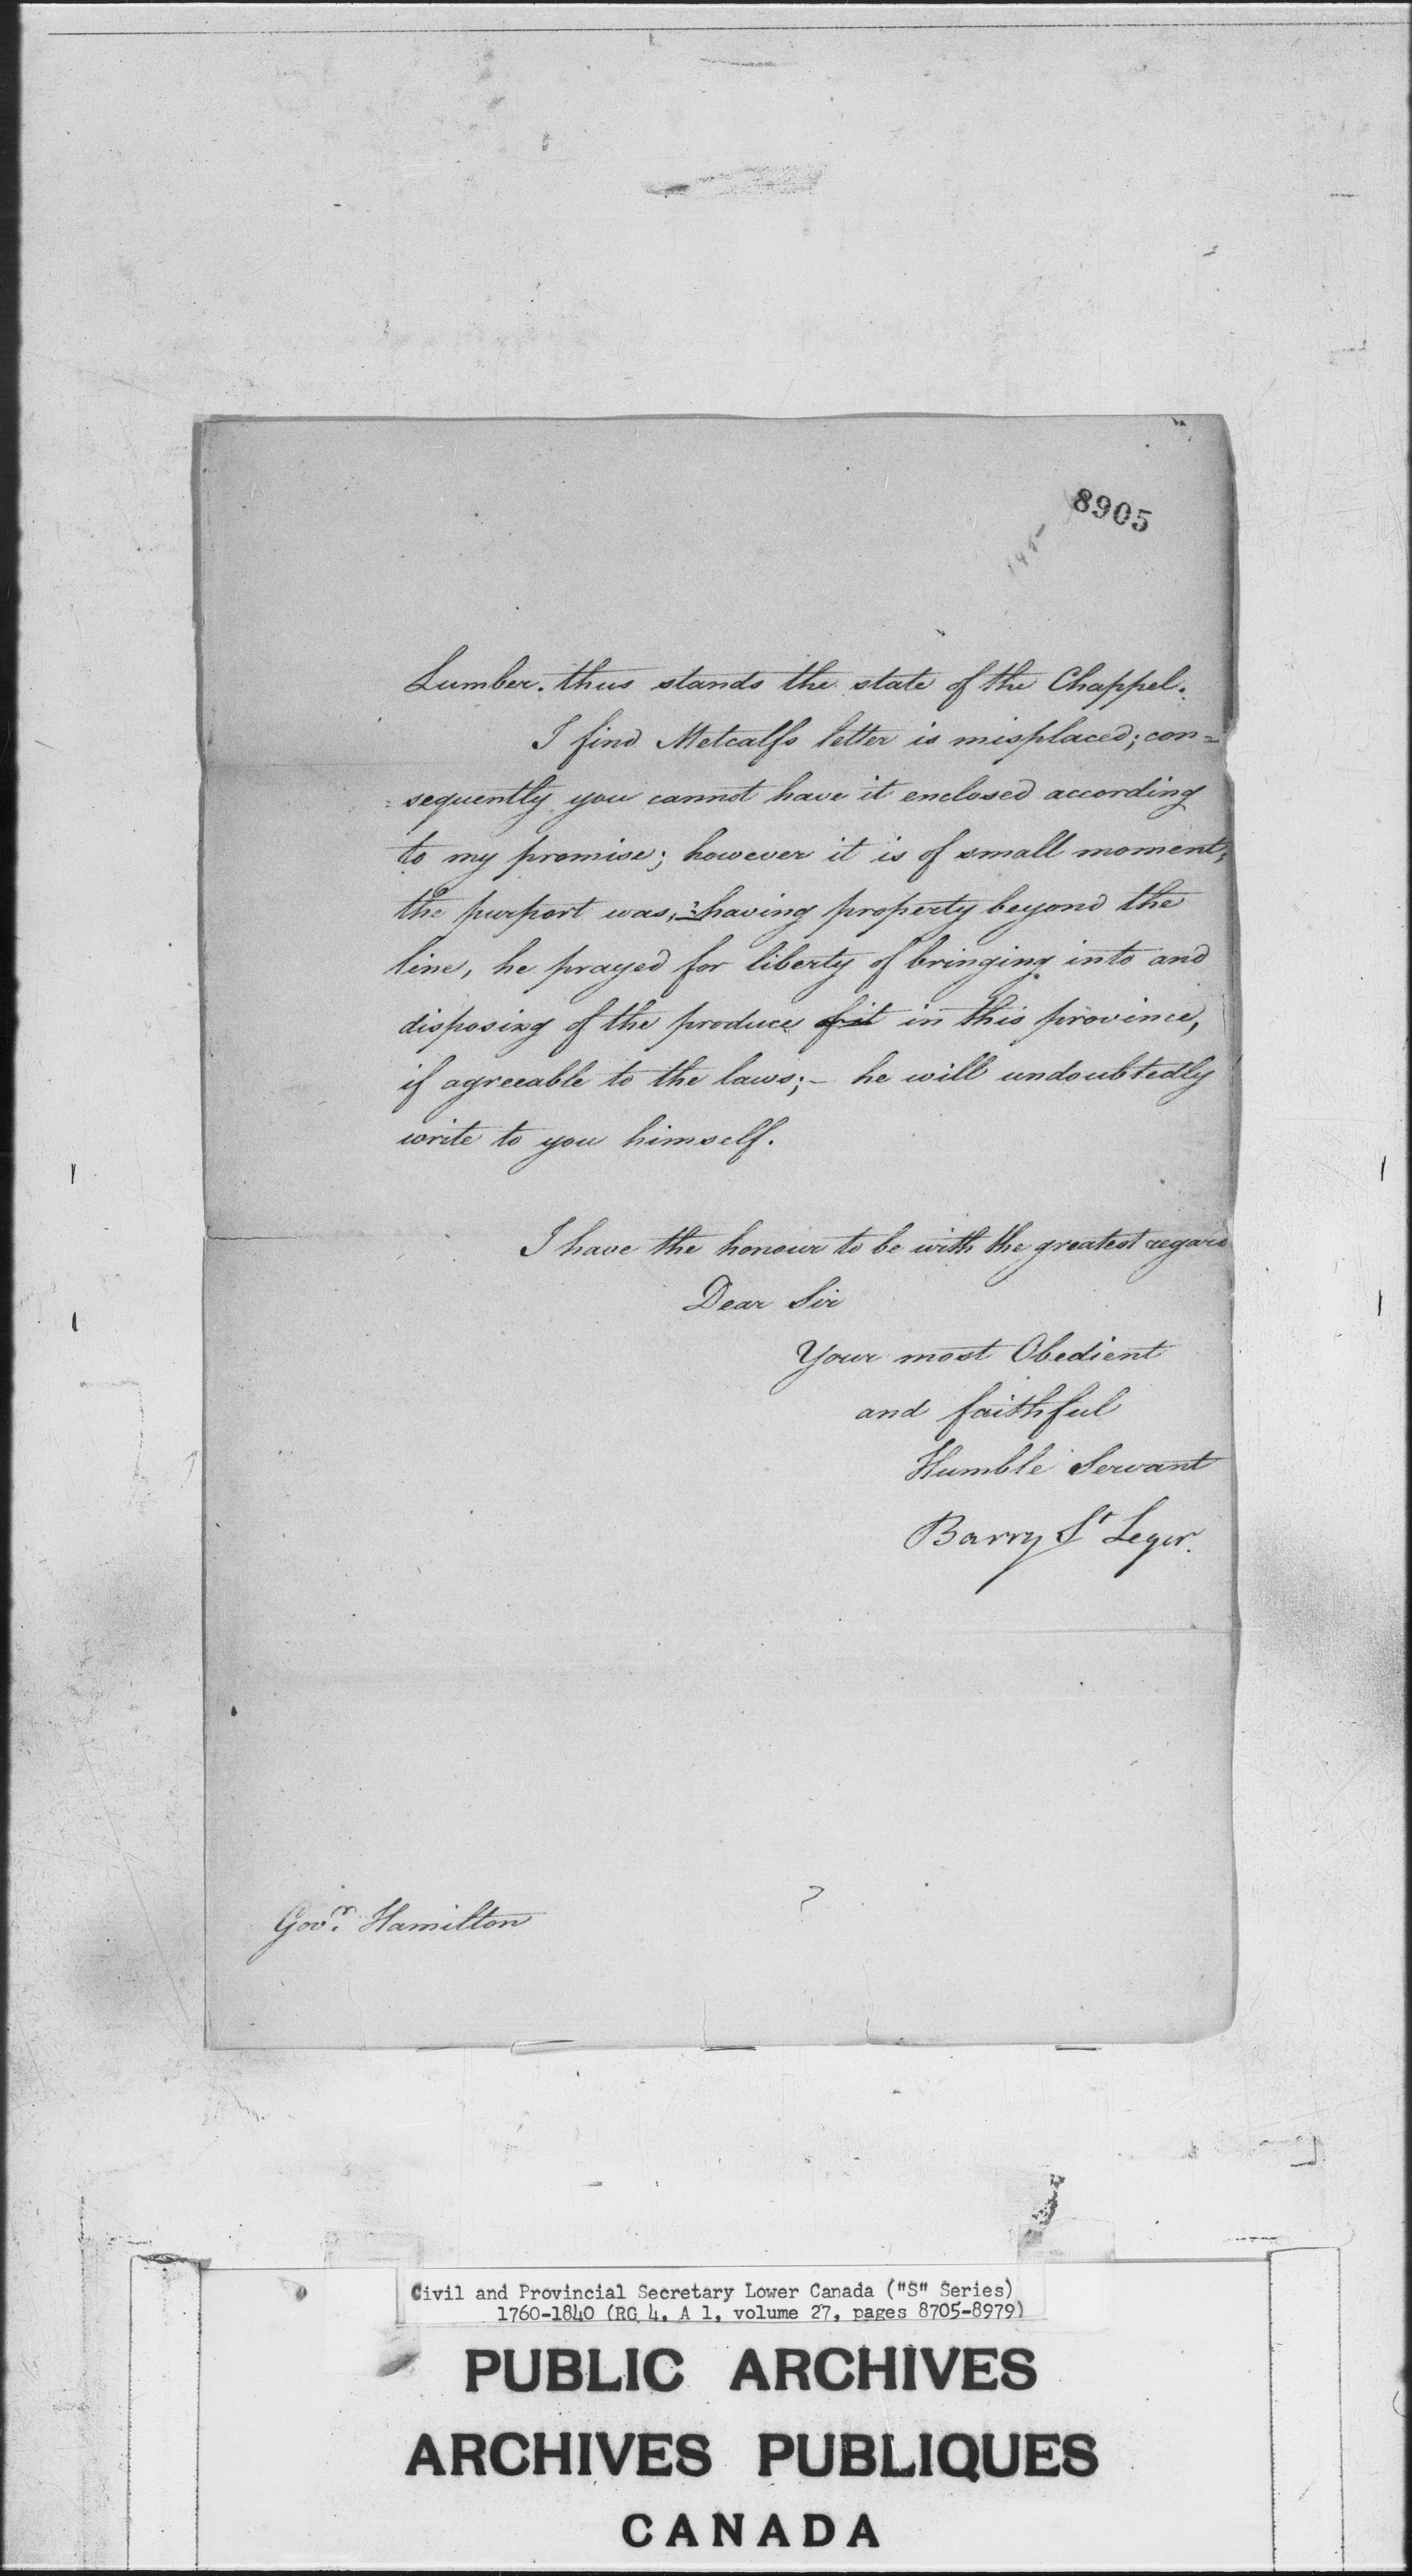 8905
Lumber. thus stands the state of the Chappel.
I find Metcalfs letter is misplaced; con=
=sequently you cannot have it enclosed according
to my promise; however it is of small moment;
the purport was, having property beyond the
line, he prayed for liberty of bringing into and
disposing of the produce of it in this province,
if agreeable to the laws;— he will undoubtedly
write to you himself.
I have the honour to be with the greatest regard
Dear Sir
Your most Obedient
and faithful
Humble Servant
Barry St Leger.
Govr. Hamilton
Civil and Provincial Secretary Lower Canada ("S" Series)
1760-1840 (RG 4, A 1, volume 27, pages 8705-8979)
PUBLIC ARCHIVES
ARCHIVES PUBLIQUES
CANADA